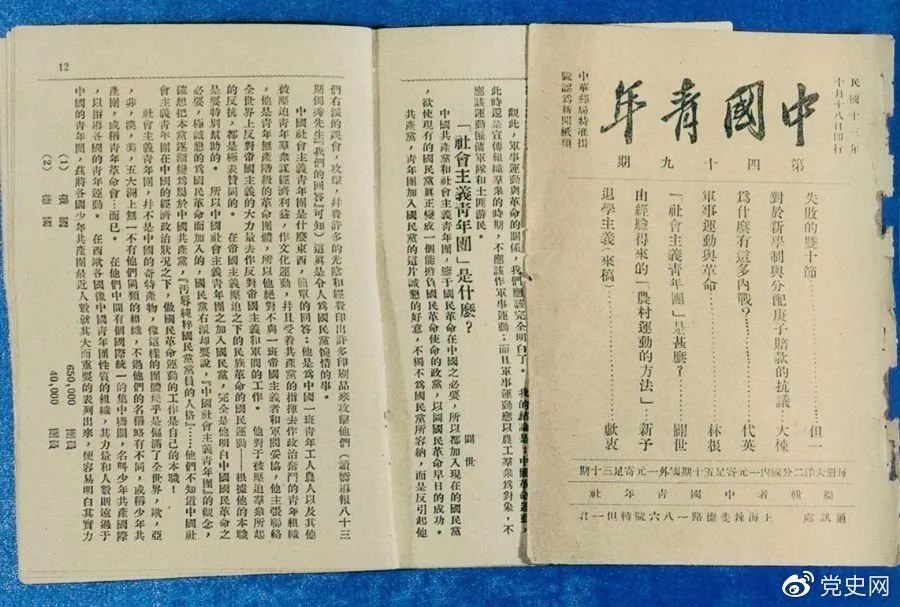 民國十三年
十月十八日印行
中國青年
中華郵局特准掛
號認爲新聞紙類
第四十九期
失敗的雙十節……但一
對於新學制與分配庚子賠款的抗議……大棟
爲什麼有這多內戰?……代英
軍事運動與革命……林根
「社會主義青年團」是甚麼?……闢世
由經驗得來的「農村運動的方法」……新予
退學主義(來稿)……獻衷
每册大洋二分國內一元寄足五十期國外一元寄足三十期
編輯者中國青年社
通訊處 上海辣斐德路一八六號轉但一君
觀此,軍事運動與革命的關係,我們應該完全明白了。我的結論是:中國革命運動,
此時還是宣傳組織羣衆的時期,不應該作軍事運動;而且軍事運動應以農工羣衆爲對象,不
應該運動僱傭軍隊和土匪游民。
「社會主義青年團」是什麼?
闢世
中國共產黨和社會主義青年團,鑒于國民革命在中國之必要,所以都加入現在的國民黨
,欲使現有的國民黨眞正變成一個能擔負國民革命使命的政黨,以圖國民革命早日的成功。
共產黨,青年團加入國民黨的這片誠懇的好意,不獨不爲國民黨所容納,而是反引起他
12
們右派的誤會,攻擊,并耗許多的光陰和經費印出許多印刷品來攻擊他們(讀嚮導報八十三
期獨秀先生『我們的回答』可知)這眞是令人爲國民黨惋惜的事。
中國社會主義青年團是什麼東西,簡單的回答:他是爲中國一班青年工人農人以及其他
被壓迫青年羣衆謀經濟利益,作文化運動,并且受着共產黨的指揮去作政治奮鬥的青年組織
,他是青年無產階級的革命團體,所以他絕對不與一班帝國主義者和軍閥妥協,他主張聯絡
全世界上反對帝國主義的大力量去作反對帝國主義和軍閥的工作。他對于被壓迫羣衆所起
的反抗,都是極表贊同的。在帝國主義壓迫之下的民族革命的國民運動——根據他的本職
是要特別幫助的。所以中國社會主義青年團之加入國民黨,完全是他明白中國國民革命之
必要,極誠懇的爲國民革命而加入的,國民黨右派却要說,『中國社會主義青年團』的觀念,
確想把本黨逐漸變爲屬於中國共產黨,『汚辱純粹國民黨黨員的人格』……他們不知道中國社
會主義青年團在中國的經濟政治狀况之下,做國民革命運動的工作是自己的本職!
社會主義青年團,幷不是中國的奇特產物,像這樣的團體幾乎是偏滿了全世界,歐,亞
,菲,澳,美,五大洲上無一不有他們同類的組織,不過他們的名稱略有不同,或稱少年共
產團,或稱青年革命會…而已。在他們中間有個國際統一的集中機關,名呌少年共產國際
,以指導各國的青年運動。在西歐各國像中國青年團性質的組織,其力量和人數則遠過于
中國的青年團,茲將各國少年共產團最近人數就其大而重要的表列出來,使容易明白其實力
(1) 俄國 650,000 團員
(2) 德國 40,000 團員
党史网